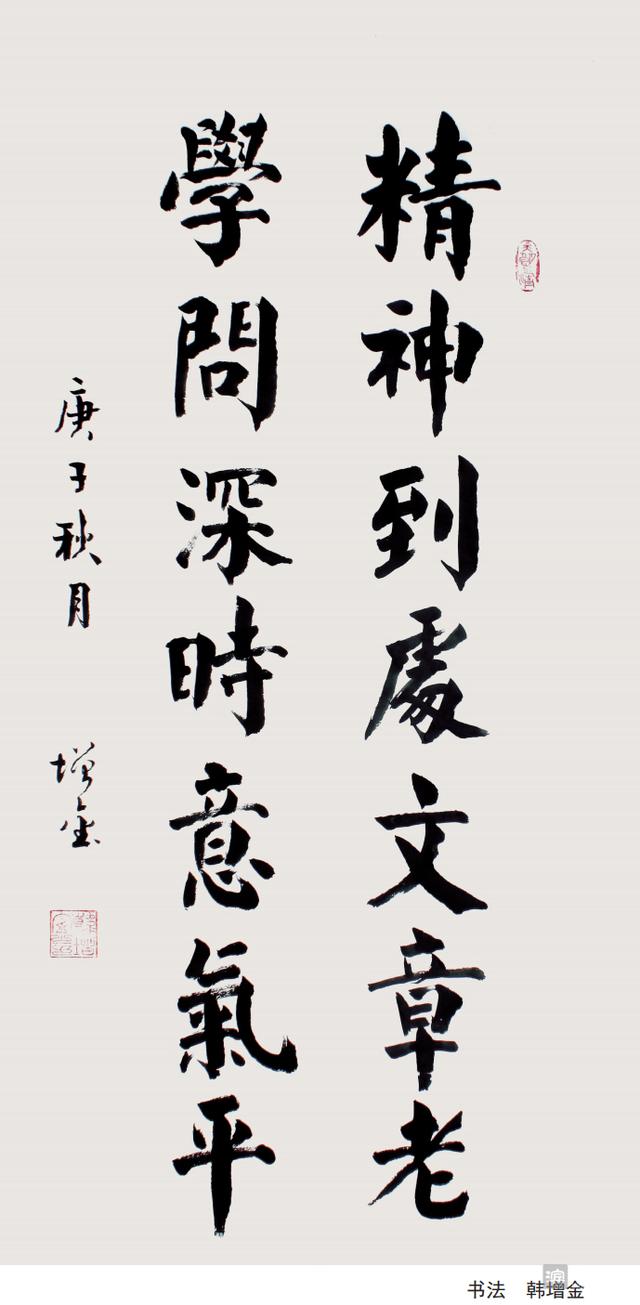 精神到處文章老
學問深時意氣平
庚子秋月
增金
书法 韩增金